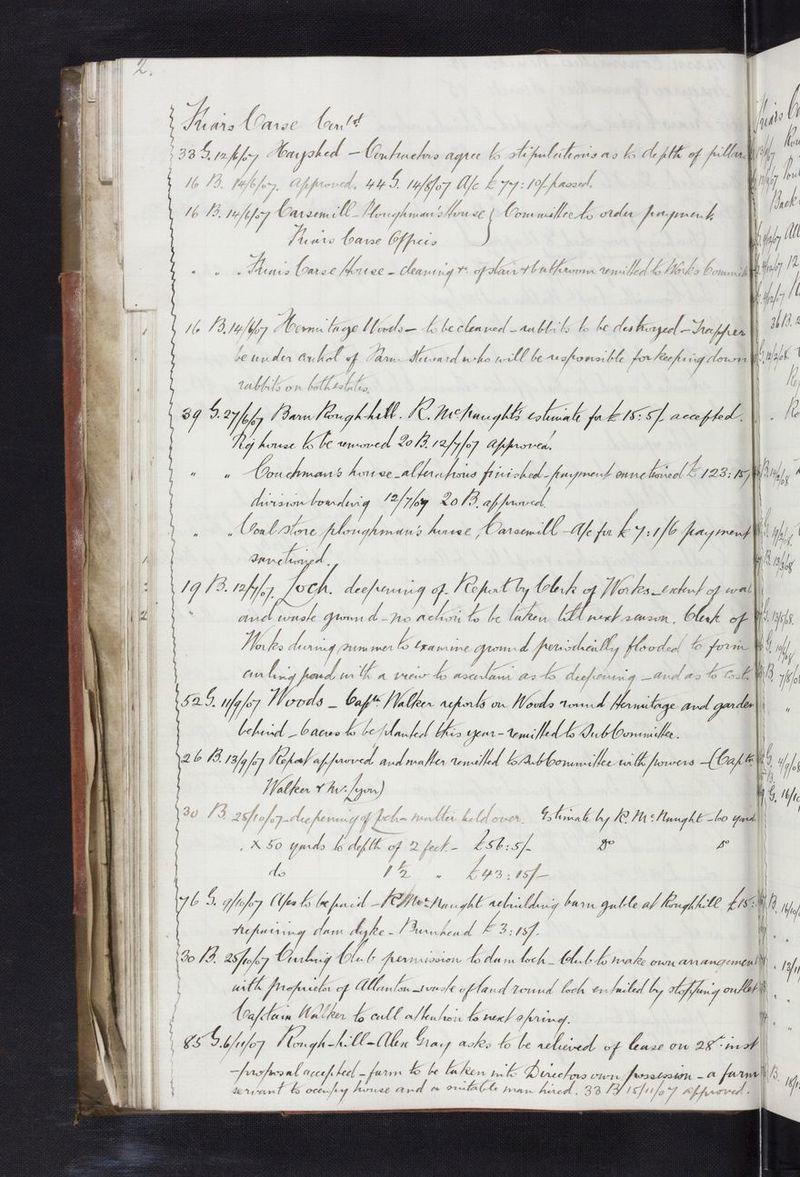 2.
Friars Carse Contd
33 G. 12/6/07 Hayshed - Contractors agree to stipulations as to depth of pillar
16 B. 14/6/07. approved. 44 G. 14/8/07 A/c £77:10/- passed.
16 B. 14/6/07 Carsemill - Ploughman's House } Committee to order payment
Friars Carse Offices
" " " Friars Carse House - cleaning &c of stair & bathroom remitted to Works Committee
16 B. 14/6/07 Hermitage Woods - to be cleaned - rabbits to be destroyed - Trapper
be under control of Farm Steward who will be responsible for keeping down
rabbits on both estates.
39 G. 27/6/07 Barn Rough-hill. R. McNaught's estimate for £15:5/- accepted.
Pig house to be removed 20 B. 12/7/07 approved.
" " Coachman's house - alterations finished - payment sanctioned £123:15/
division boarding 12/7/07 20 B. approved.
" " Coal store ploughman's house, Carsemill - A/c for £7:1/6 payment
sanctioned.
19 B. 12/7/07. Loch. deepening of - Report by Clerk of Works - extent of
" and waste ground - no action to be taken till next season. Clerk of
Works during summer to examine ground periodically flooded to form
curling pond with a view to ascertain as to deepening - and as to cost.
52 G. 11/9/07 Woods - Captn Walker reports on Woods round Hermitage and garden
behind - 6 acres to be planted this year - remitted to Sub Committee.
26 B. 13/9/07 Report approved and matter remitted to Sub Committee with powers - (Captn
Walker & Mr. Lyon)
30 B. 25/10/07 - deepening of Loch - matter held over. Estimate by R. McNaught - 60 yards
x 50 yards to depth of 2 feet - £56:5/- Do Do
do 1½ " £43:15/-
76 G. 9/10/07 A/cs to be paid - R. McNaught rebuilding barn gable at Roughhill £15:
repairing dam dyke - Burnhead £3:15/-.
30 B. 25/10/07 Curling Club permission to dam loch - Club to make own arrangement
with proprietor of Allanton - waste of land round loch entailed by stopping outlet
Captain Walker to call attention to next spring.
85 G. 6/11/07 Rough-hill - Alex Gray asks to be relieved of lease on 28th inst
- proposal accepted - farm to be taken into Directors own possession - a farm
servant to occupy house and a suitable man hired. 33 B 15/11/07 approved.